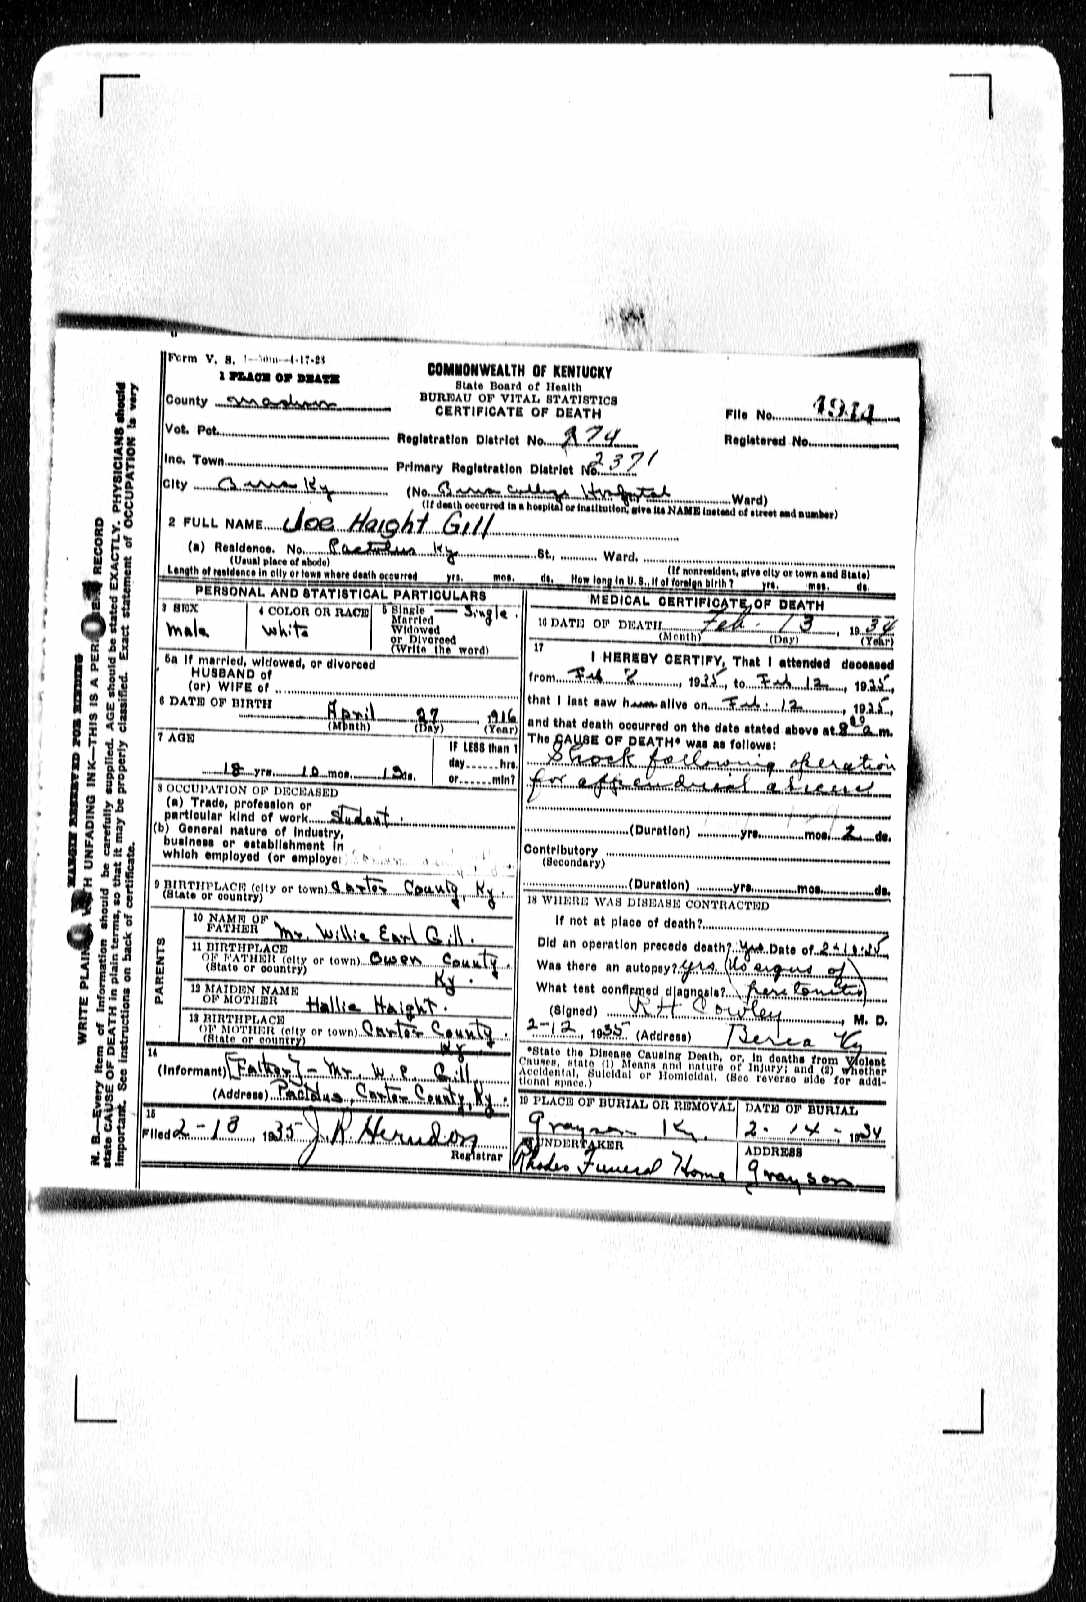 Form V. S. 1—50m—4-17-23
1 PLACE OF DEATH
COMMONWEALTH OF KENTUCKY
State Board of Health
BUREAU OF VITAL STATISTICS
CERTIFICATE OF DEATH
County Madison
File No.
Vot. Pct.
Registration District No. 874
Registered No.
Inc. Town
Primary Registration District No. 2371
City Berea Ky
(No. Berea College Hospital Ward)
(If death occurred in a hospital or institution, give its NAME instead of street and number)
2 FULL NAME Joe Haight Gill
(a) Residence. No. Pactolus Ky St., Ward.
(Usual place of abode) (If nonresident, give city or town and State)
Length of residence in city or town where death occurred yrs. mos. ds. How long in U. S., if of foreign birth? yrs. mos. ds.
PERSONAL AND STATISTICAL PARTICULARS
3 SEX
Male
4 COLOR OR RACE
White
5 Single — Single.
Married
Widowed
or Divorced
(Write the word)
5a If married, widowed, or divorced
HUSBAND of
(or) WIFE of
6 DATE OF BIRTH
April 27, 1916
(Month) (Day) (Year)
7 AGE
18 yrs. 10 mos. ds.
IF LESS than 1
day hrs.
or min?
8 OCCUPATION OF DECEASED
(a) Trade, profession or
particular kind of work Student.
(b) General nature of industry,
business or establishment in
which employed (or employer)
9 BIRTHPLACE (city or town) Carter County, Ky.
(State or country)
PARENTS
10 NAME OF
FATHER Mr. Willie Earl Gill.
11 BIRTHPLACE
OF FATHER (city or town) Owen County.
(State or country) Ky.
12 MAIDEN NAME
OF MOTHER Hallie Haight.
13 BIRTHPLACE
OF MOTHER (city or town) Carter County.
(State or country) Ky.
14
(Informant) [Father] – Mr. W. E. Gill
(Address) Pactolus, Carter County, Ky.
15
Filed 2-18, 1935 J R Herndon
Registrar
MEDICAL CERTIFICATE OF DEATH
16 DATE OF DEATH Feb. 13, 1934
(Month) (Day) (Year)
17
I HEREBY CERTIFY, That I attended deceased
from Feb, 1935, to Feb 12, 1935,
that I last saw him alive on Feb. 12, 1935,
and that death occurred on the date stated above at 8 a.m.
The CAUSE OF DEATH* was as follows:
Shock following operation
for appendiceal abscess
(Duration) yrs. mos. 2 ds.
Contributory
(Secondary)
(Duration) yrs. mos. ds.
18 WHERE WAS DISEASE CONTRACTED
If not at place of death?
Did an operation precede death? Yes Date of 2-10-35
Was there an autopsy? Yes (No signs of)
What test confirmed diagnosis? peritonitis)
(Signed) R H Cowley, M. D.
2-12, 1935 (Address) Berea Ky
*State the Disease Causing Death, or, in deaths from Violent
Causes, state (1) Means and nature of Injury; and (2) whether
Accidental, Suicidal or Homicidal. (See reverse side for addi-
tional space.)
19 PLACE OF BURIAL OR REMOVAL
Grayson Ky.
DATE OF BURIAL
2-14-, 1934
20 UNDERTAKER
Rhodes Funeral Home
ADDRESS
Grayson
MARGIN RESERVED FOR BINDING
WRITE PLAINLY, WITH UNFADING INK—THIS IS A PERMANENT RECORD
N. B.—Every item of information should be carefully supplied. AGE should be stated EXACTLY. PHYSICIANS should
state CAUSE OF DEATH in plain terms, so that it may be properly classified. Exact statement of OCCUPATION is very
important. See instructions on back of certificate.